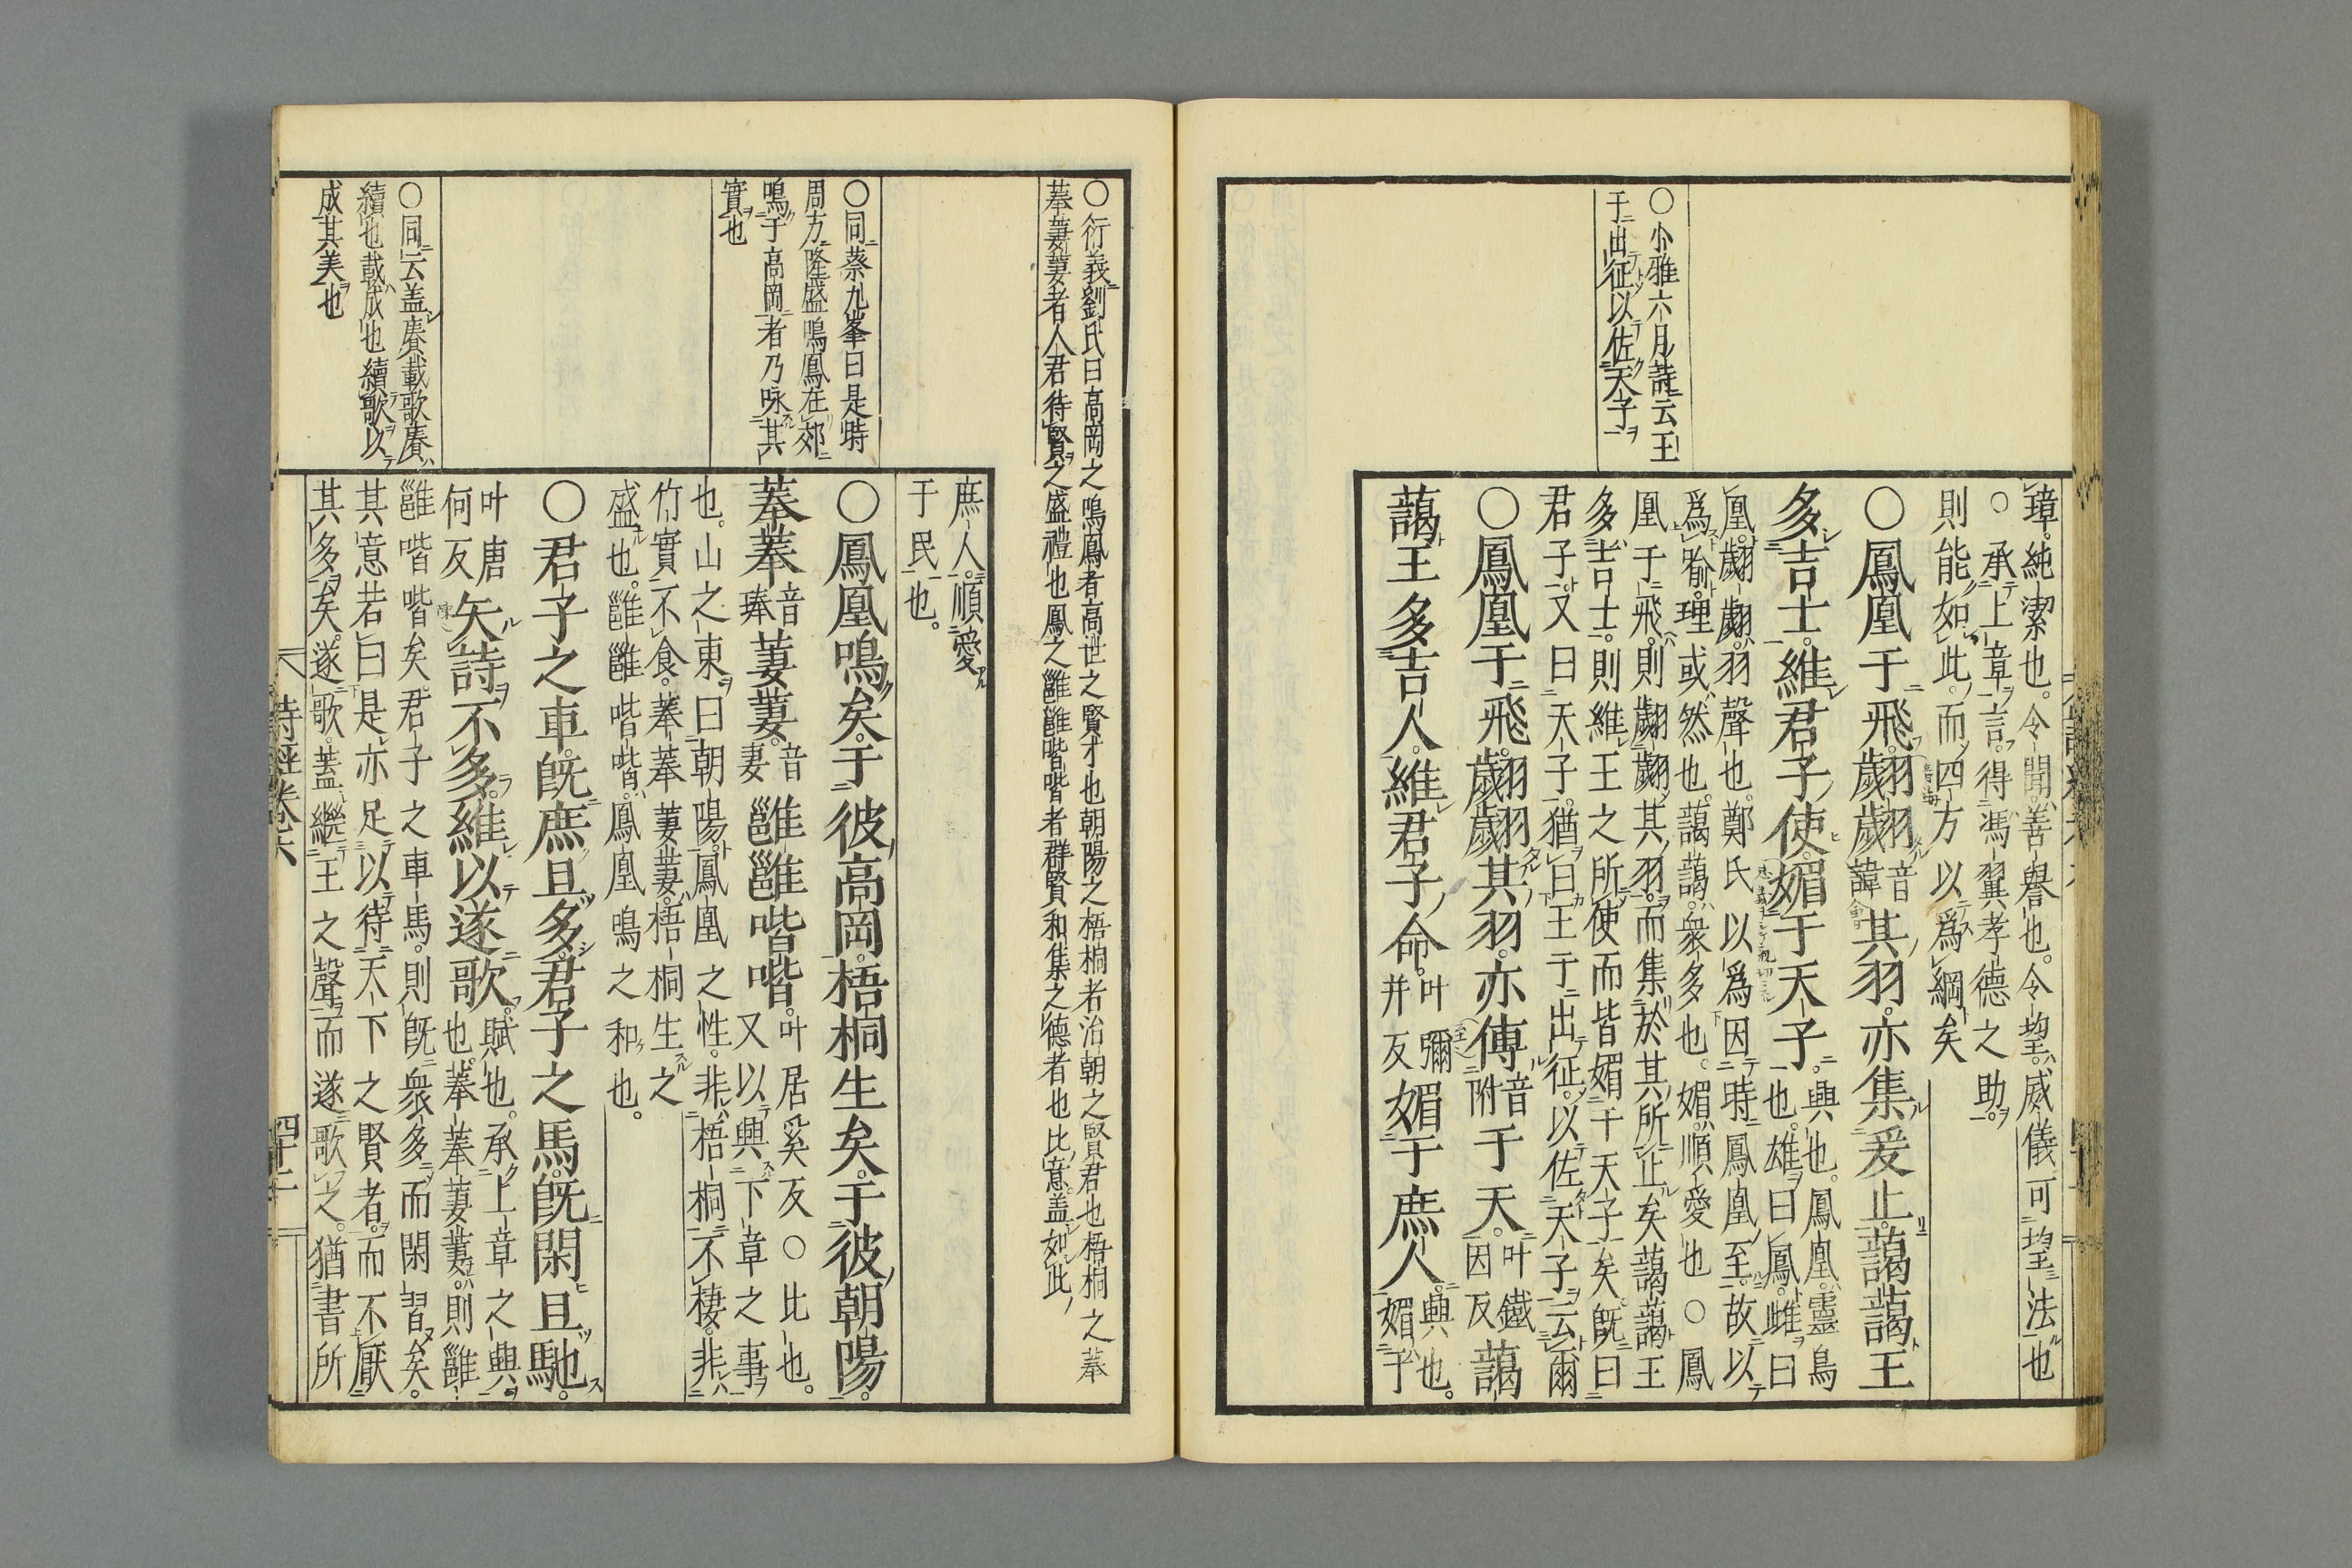 ○小雅六月詩云王
于出征以佐天子
璋純潔也令聞善譽也令望威儀可望法也
○承上章言得馮翼孝德之助
則能如此而四方以爲綱矣
○鳳凰于飛翽翽音諱其羽亦集爰止藹藹王
多吉士維君子使媚于天子興也鳳凰靈鳥也雄曰鳳雌曰
凰翽翽羽聲也鄭氏以爲因時鳳凰至故以
爲喻理或然也藹藹衆多也媚順愛也○鳳
凰于飛則翽翽其羽而集於其所止矣藹藹王
多吉士則維王之所使而皆媚于天子矣旣曰
君子又曰天子猶曰王于出征以佐天子云爾
○鳳凰于飛翽翽其羽亦傅音附于天叶鐵因反藹
藹王多吉人維君子命叶彌并反媚于庶人興也媚于
○衍義劉氏曰高岡之鳴鳳者高世之賢才也朝陽之梧桐者治朝之賢君也梧桐之菶
菶萋萋者人君待賢之盛禮也鳳之雝雝喈喈者群賢和集之德者也比意盖如此
○同蔡九峯曰是時
周方隆盛鳴鳳在郊
鳴于高岡者乃咏其
實也
○同云盖賡載歌賡
續也載成也續歌以
成其美也
庶人順愛
于民也
○鳳凰鳴矣于彼高岡梧桐生矣于彼朝陽
菶菶音琫萋萋音妻雝雝喈喈叶居奚反○比也又以興下章之事
也山之東曰朝陽鳳凰之性非梧桐不棲非
竹實不食菶菶萋萋梧桐生之
盛也雝雝喈喈鳳凰鳴之和也
○君子之車旣庶且多君子之馬旣閑且馳
叶唐何反矢詩不多維以遂歌賦也承上章之興也菶菶萋萋則雝
雝喈喈矣君子之車馬則旣衆多而閑習矣
其意若曰是亦足以待天下之賢者而不厭
其多矣遂歌蓋繼王之聲而遂歌之猶書所
詩經卷六
四十二